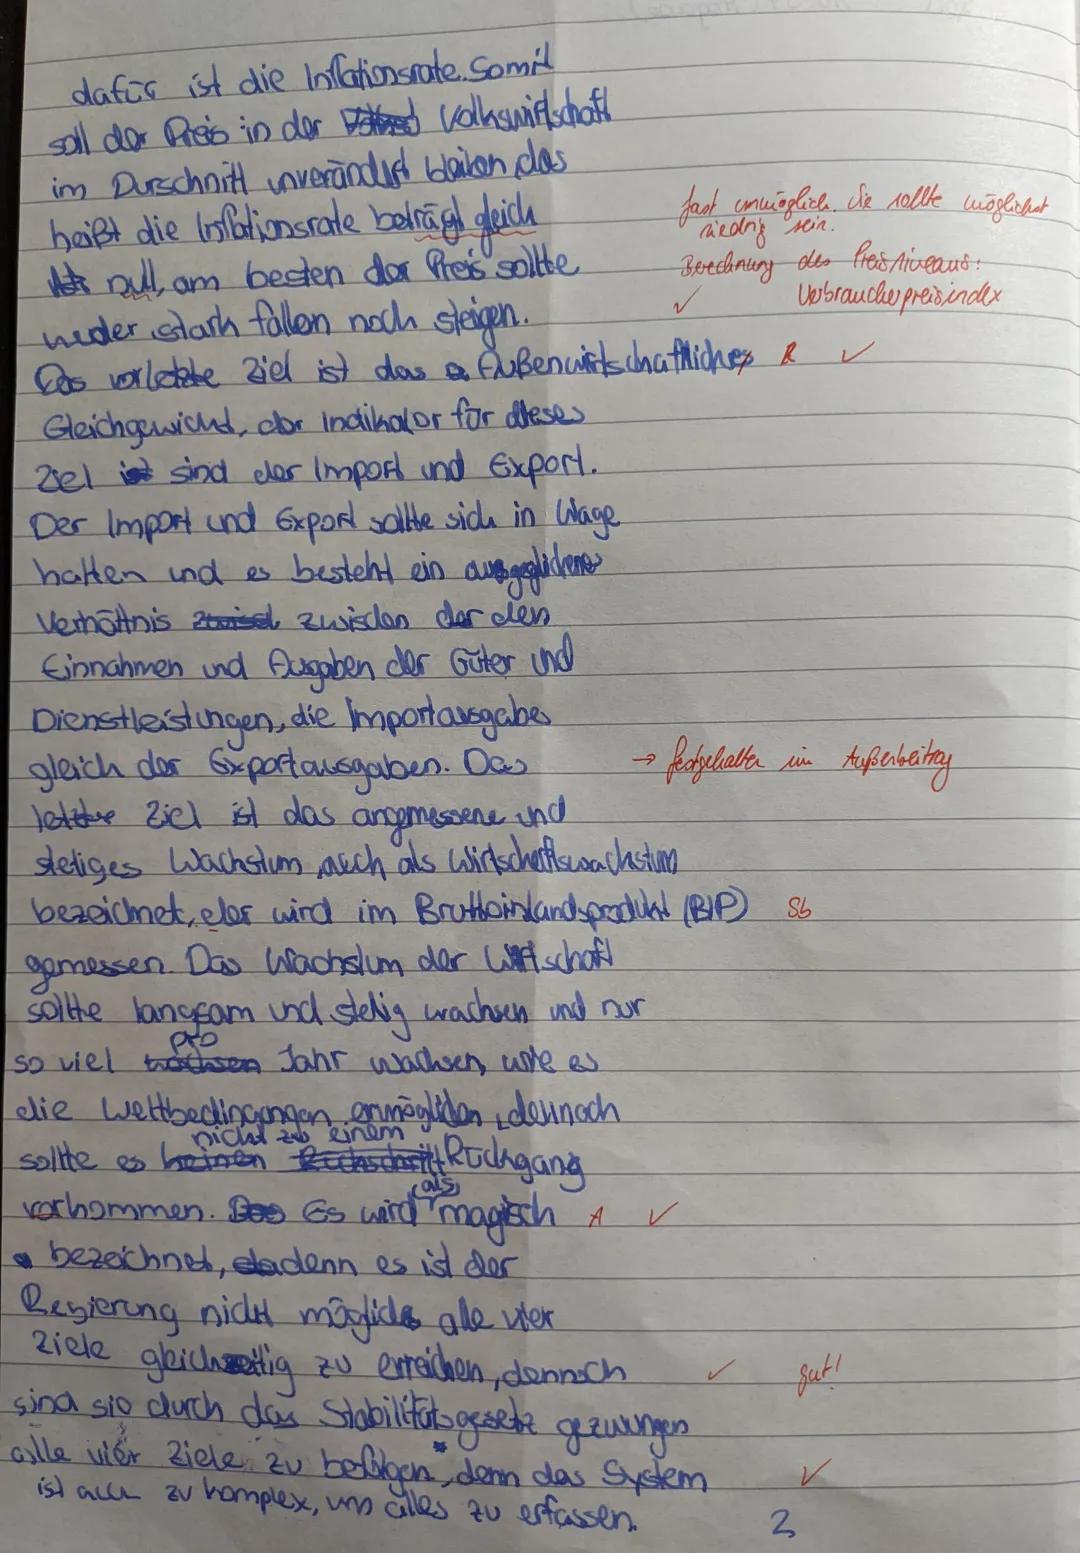 dafür ist die Inflationsrate. Somit
soll der Preis in der Volkswirtschaft
im Durschnitt unverändert bleiben, das
heißt die Inflationsrate beträgt gleich
fast unmöglich. Sie sollte möglichst
niedrig sein.
null, am besten der Preis sollte
Berechnung des Preisniveaus:
Verbraucherpreisindex
weder stark fallen noch steigen. ✓
Das vorletzte Ziel ist das Außenwirtschaftliches R ✓
Gleichgewicht, der Indikator für dieses
Ziel ist sind der Import und Export.
Der Import und Export sollte sich in Wage
halten und es besteht ein ausgeglichenes
Verhältnis zwisel zwischen der den
Einnahmen und Ausgaben der Güter und
Dienstleistungen, die Importausgaben
gleich der Exportausgaben. Das → festgehalten im Außenbeitrag
letzte Ziel ist das angemessene und
stetiges Wachstum, auch als Wirtschaftswachstum
bezeichnet, der wird im Bruttoinlandsprodukt (BIP) Sb
gemessen. Das Wachstum der Wirtschaft
sollte langsam und stetig wachsen und nur
so viel wachsen pro Jahr wachsen, wie es
die Weltbedingungen ermöglichen, dennoch
sollte es keinen nicht zu einem Rückschritt Rückgang
vorkommen. Das Es wird (als) magisch A ✓
bezeichnet, denn es ist der
Regierung nicht möglich alle vier
Ziele gleichzeitig zu erreichen, dennoch ✓ gut!
sind sie durch das Stabilitätsgesetz gezwungen
alle vier Ziele zu befolgen*, denn das System ✓
ist auch zu komplex, um alles zu erfassen.
2